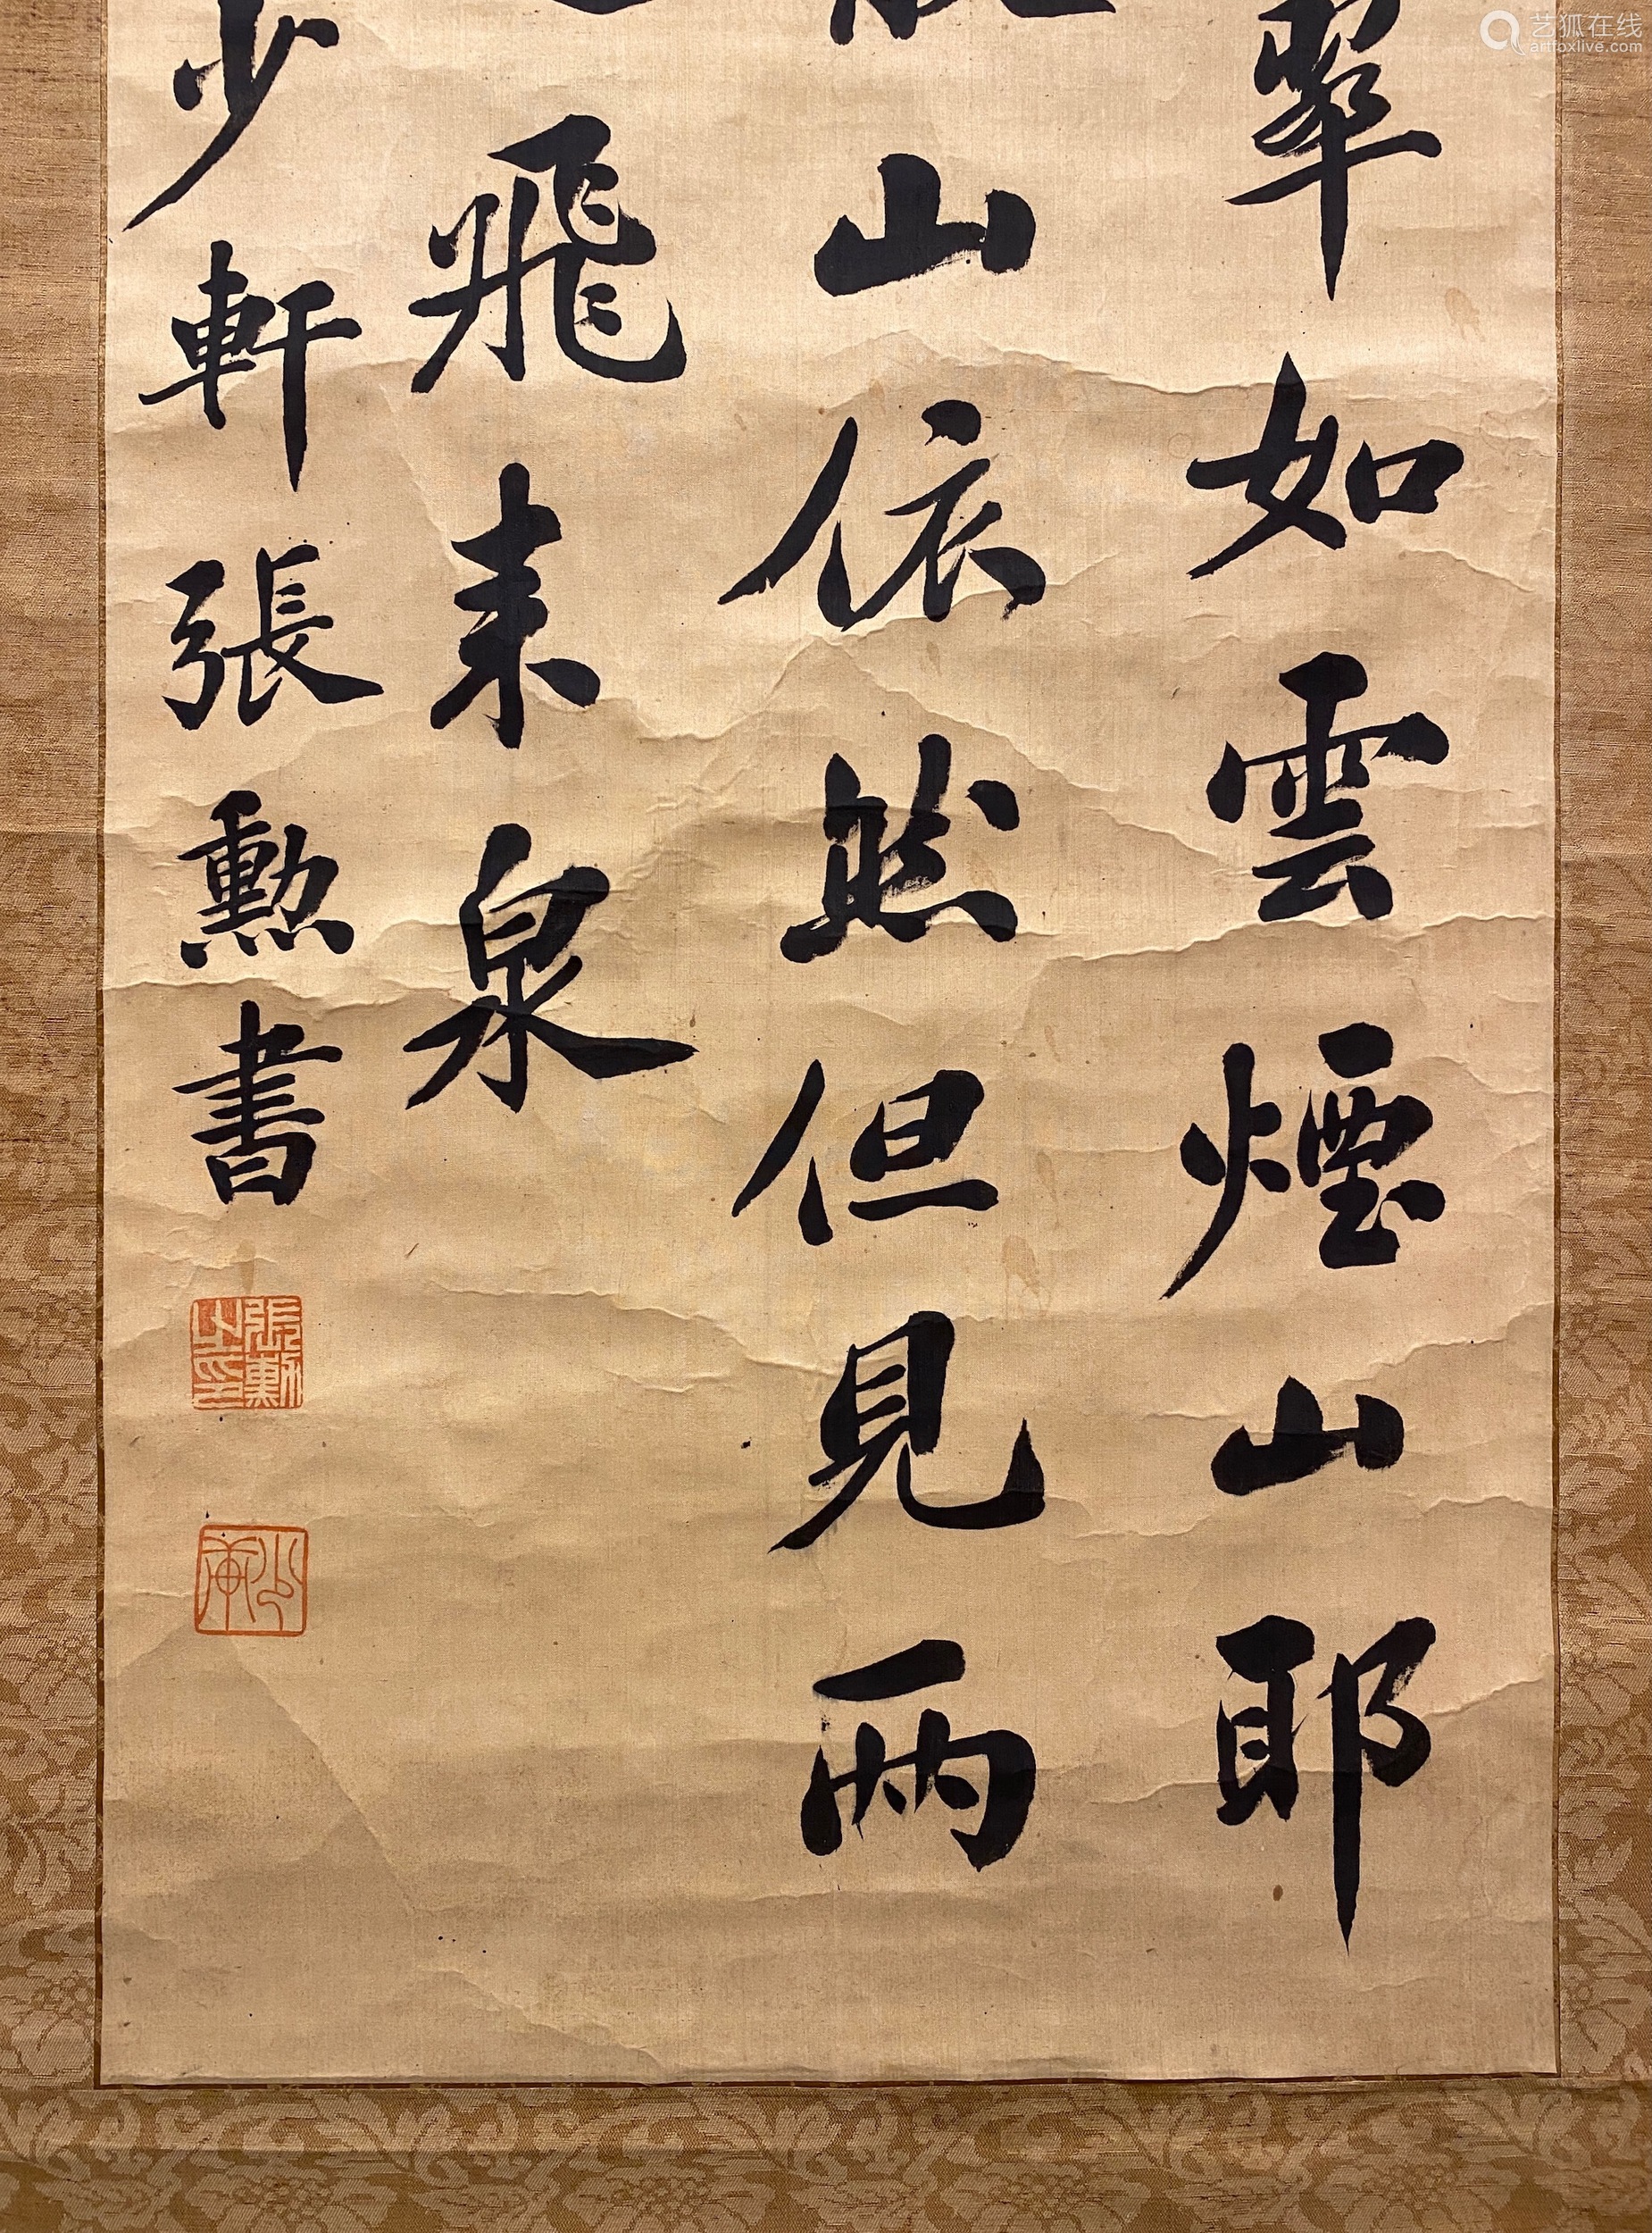 翠如雲煙山耶
山依然但見兩
飛来泉
少軒張勳書
張勳之印
少軒
艺狐在线
artfoxlive.com